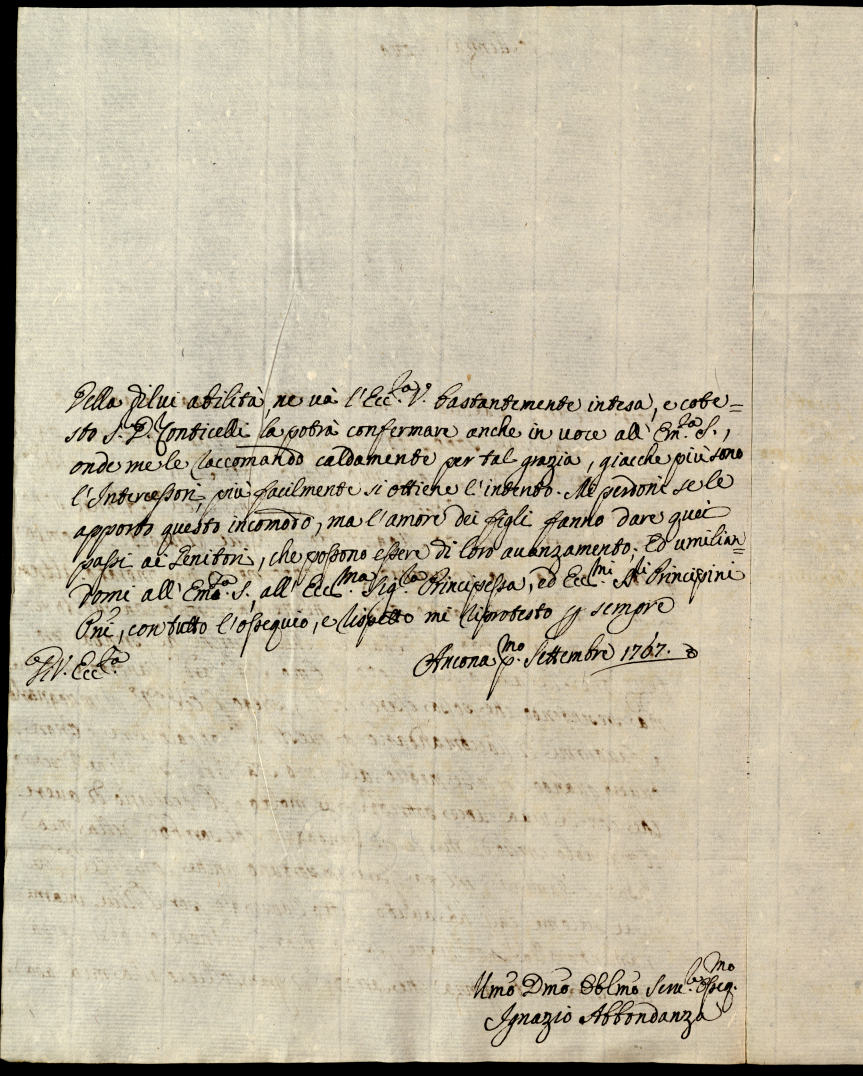 Della dilui abilità, ne và l'Ecc.ª V. bastantemente intesa, e cote=
sto S. D. Conticelli la potrà confermare anche in voce all' Em.ª S.,
onde me le raccomando caldamente per tal grazia, giacche più sono
l'Intercessori, più facilmente si ottiene l'intento. Me perdoni se le
apporto questo incomodo, ma l'amore dei figli fanno dare quei
passi ai Genitori, che possono essere di loro avanzamento; Ed umilian=
domi all' Em.ª S., all' Ecc.ma Sig.ra Principessa, ed Ecc.mi SS.ri Principini
Pni, con tutto l'ossequio, e rispetto mi riprotesto sempre
D. V. Ecc.za
Ancona p.mo Settembre 1767.
Umo Dmo Oblmo Serv.le Osseq.mo
Ignazio Abbondanza